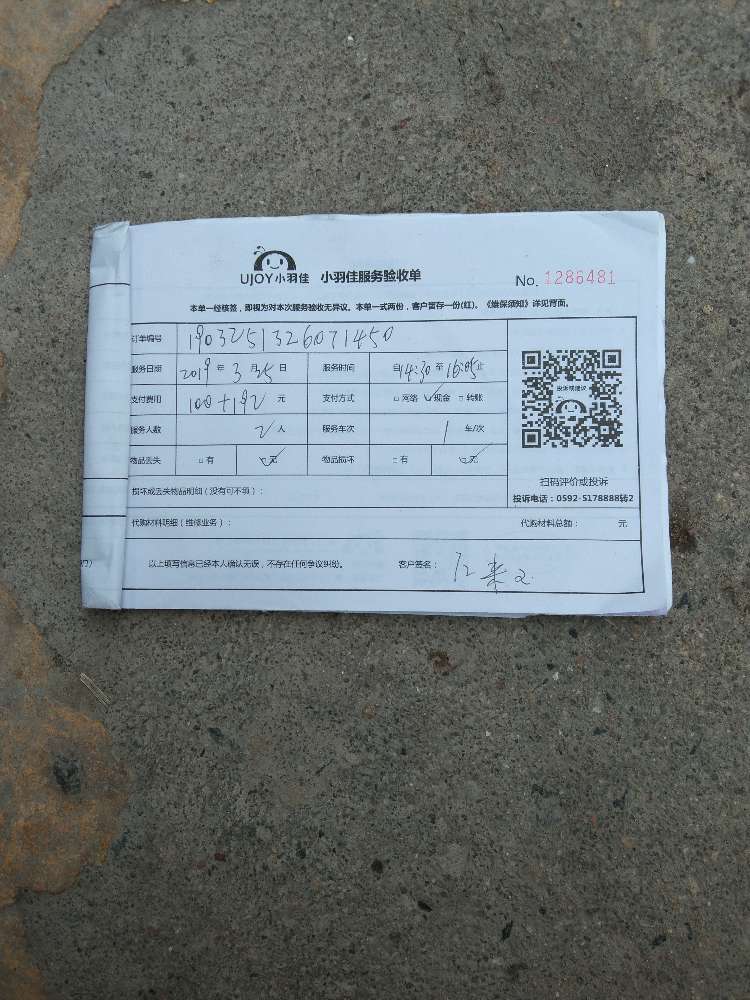 UJOY小羽佳 小羽佳服务验收单 No. 1286481
本单一经核签，即视为对本次服务验收无异议。本单一式两份，客户暂存一份(红)。《维保须知》详见背面。
订单编号 190325132607 1450
服务日期 2019 年 3 月 25 日 服务时间 自 14:30 至 16:05 止
支付费用 100+192 元 支付方式 □网络 ☑现金 □转账
服务人数 2 人 服务车次 1 车/次
物品丢失 □有 ☑无 物品损坏 □有 ☑无
损坏或丢失物品明细（没有可不填）：
扫码评价或投诉
投诉电话：0592-5178888转2
代购材料明细（维修业务）： 代购材料总额： 元
以上填写信息已经本人确认无误，不存在任何争议纠纷。 客户签名：